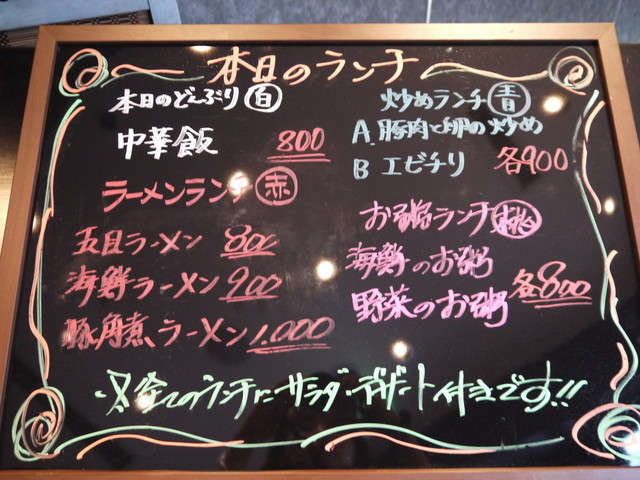 本日のランチ
本日のどんぶり 白
中華飯 800
ラーメンランチ 赤
五目ラーメン 800
海鮮ラーメン 900
豚角煮ラーメン 1,000
炒めランチ 青
A 豚肉と卵の炒め
B エビチリ 各900
お粥ランチ 桃
海鮮のお粥
野菜のお粥 各800
※全てのランチにサラダ・デザート付きです!!